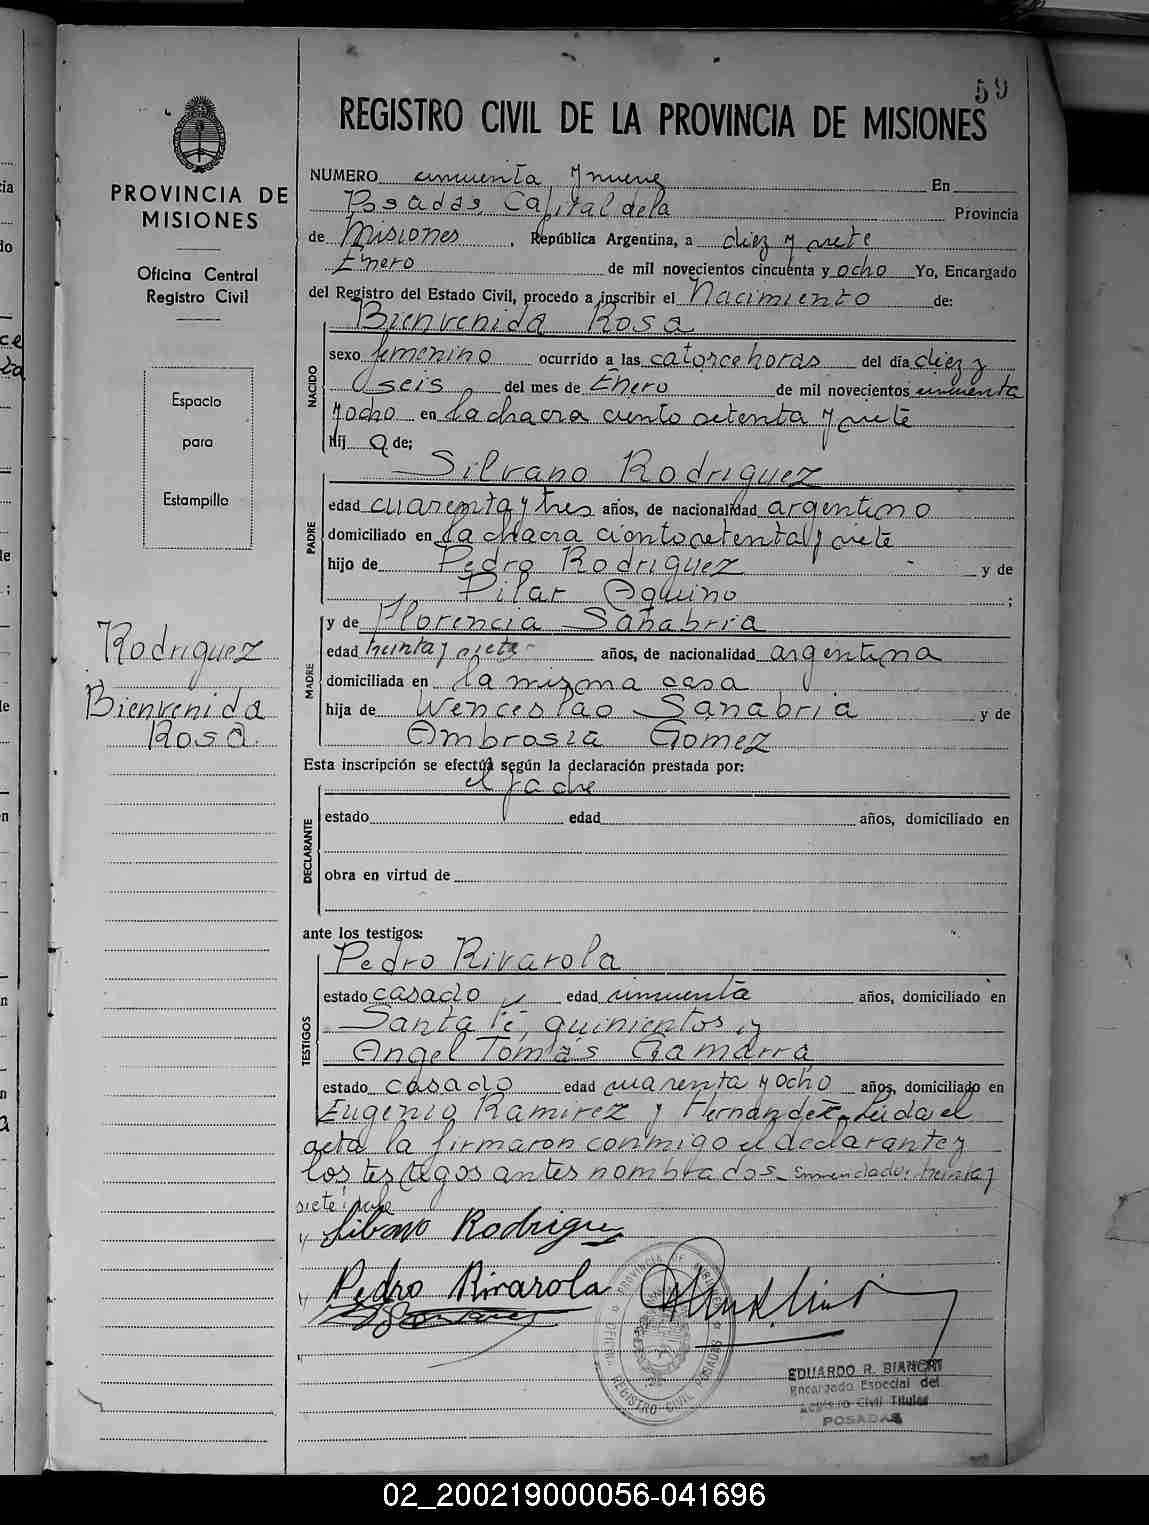 59
REGISTRO CIVIL DE LA PROVINCIA DE MISIONES
PROVINCIA DE
MISIONES
Oficina Central
Registro Civil
Espacio
para
Estampilla
Rodriguez
Bienvenida
Rosa.
NUMERO cincuenta y nueve En
Posadas, Capital de la Provincia
de Misiones, República Argentina, a diez y siete
Enero de mil novecientos cincuenta y ocho Yo, Encargado
del Registro del Estado Civil, procedo a inscribir el Nacimiento de:
NACIDO
Bienvenida Rosa
sexo femenino ocurrido a las catorce horas del día diez y
seis del mes de Enero de mil novecientos cincuenta
y ocho en la chacra ciento setenta y siete
hij a de;
PADRE
Silvano Rodriguez
edad cuarenta y tres años, de nacionalidad argentino
domiciliado en la chacra ciento setenta y siete
hijo de Pedro Rodriguez y de
Pilar Aquino ;
MADRE
y de Florencia Sanabria
edad treinta y siete años, de nacionalidad argentina
domiciliada en la misma casa
hija de Wenceslao Sanabria y de
Ambrosia Gomez
Esta inscripción se efectúa según la declaración prestada por:
DECLARANTE
el padre
estado edad años, domiciliado en
obra en virtud de
ante los testigos:
TESTIGOS
Pedro Rivarola
estado casado edad cincuenta años, domiciliado en
Santa Fé, quinientos y
Angel Tomás Gamarra
estado casado edad cuarenta y ocho años, domiciliado en
Eugenio Ramirez y Hernandez. Leida el
acta la firmaron conmigo el declarante y
los testigos antes nombrados. Enmendado: treinta y
siete: vale
Silvano Rodrigue
Pedro Rivarola
PROVINCIA DE MISIONES
REGISTRO CIVIL POSADAS
EDUARDO R. BIANCHI
Encargado Especial del
Registro Civil Titular
POSADAS
02_200219000056-041696